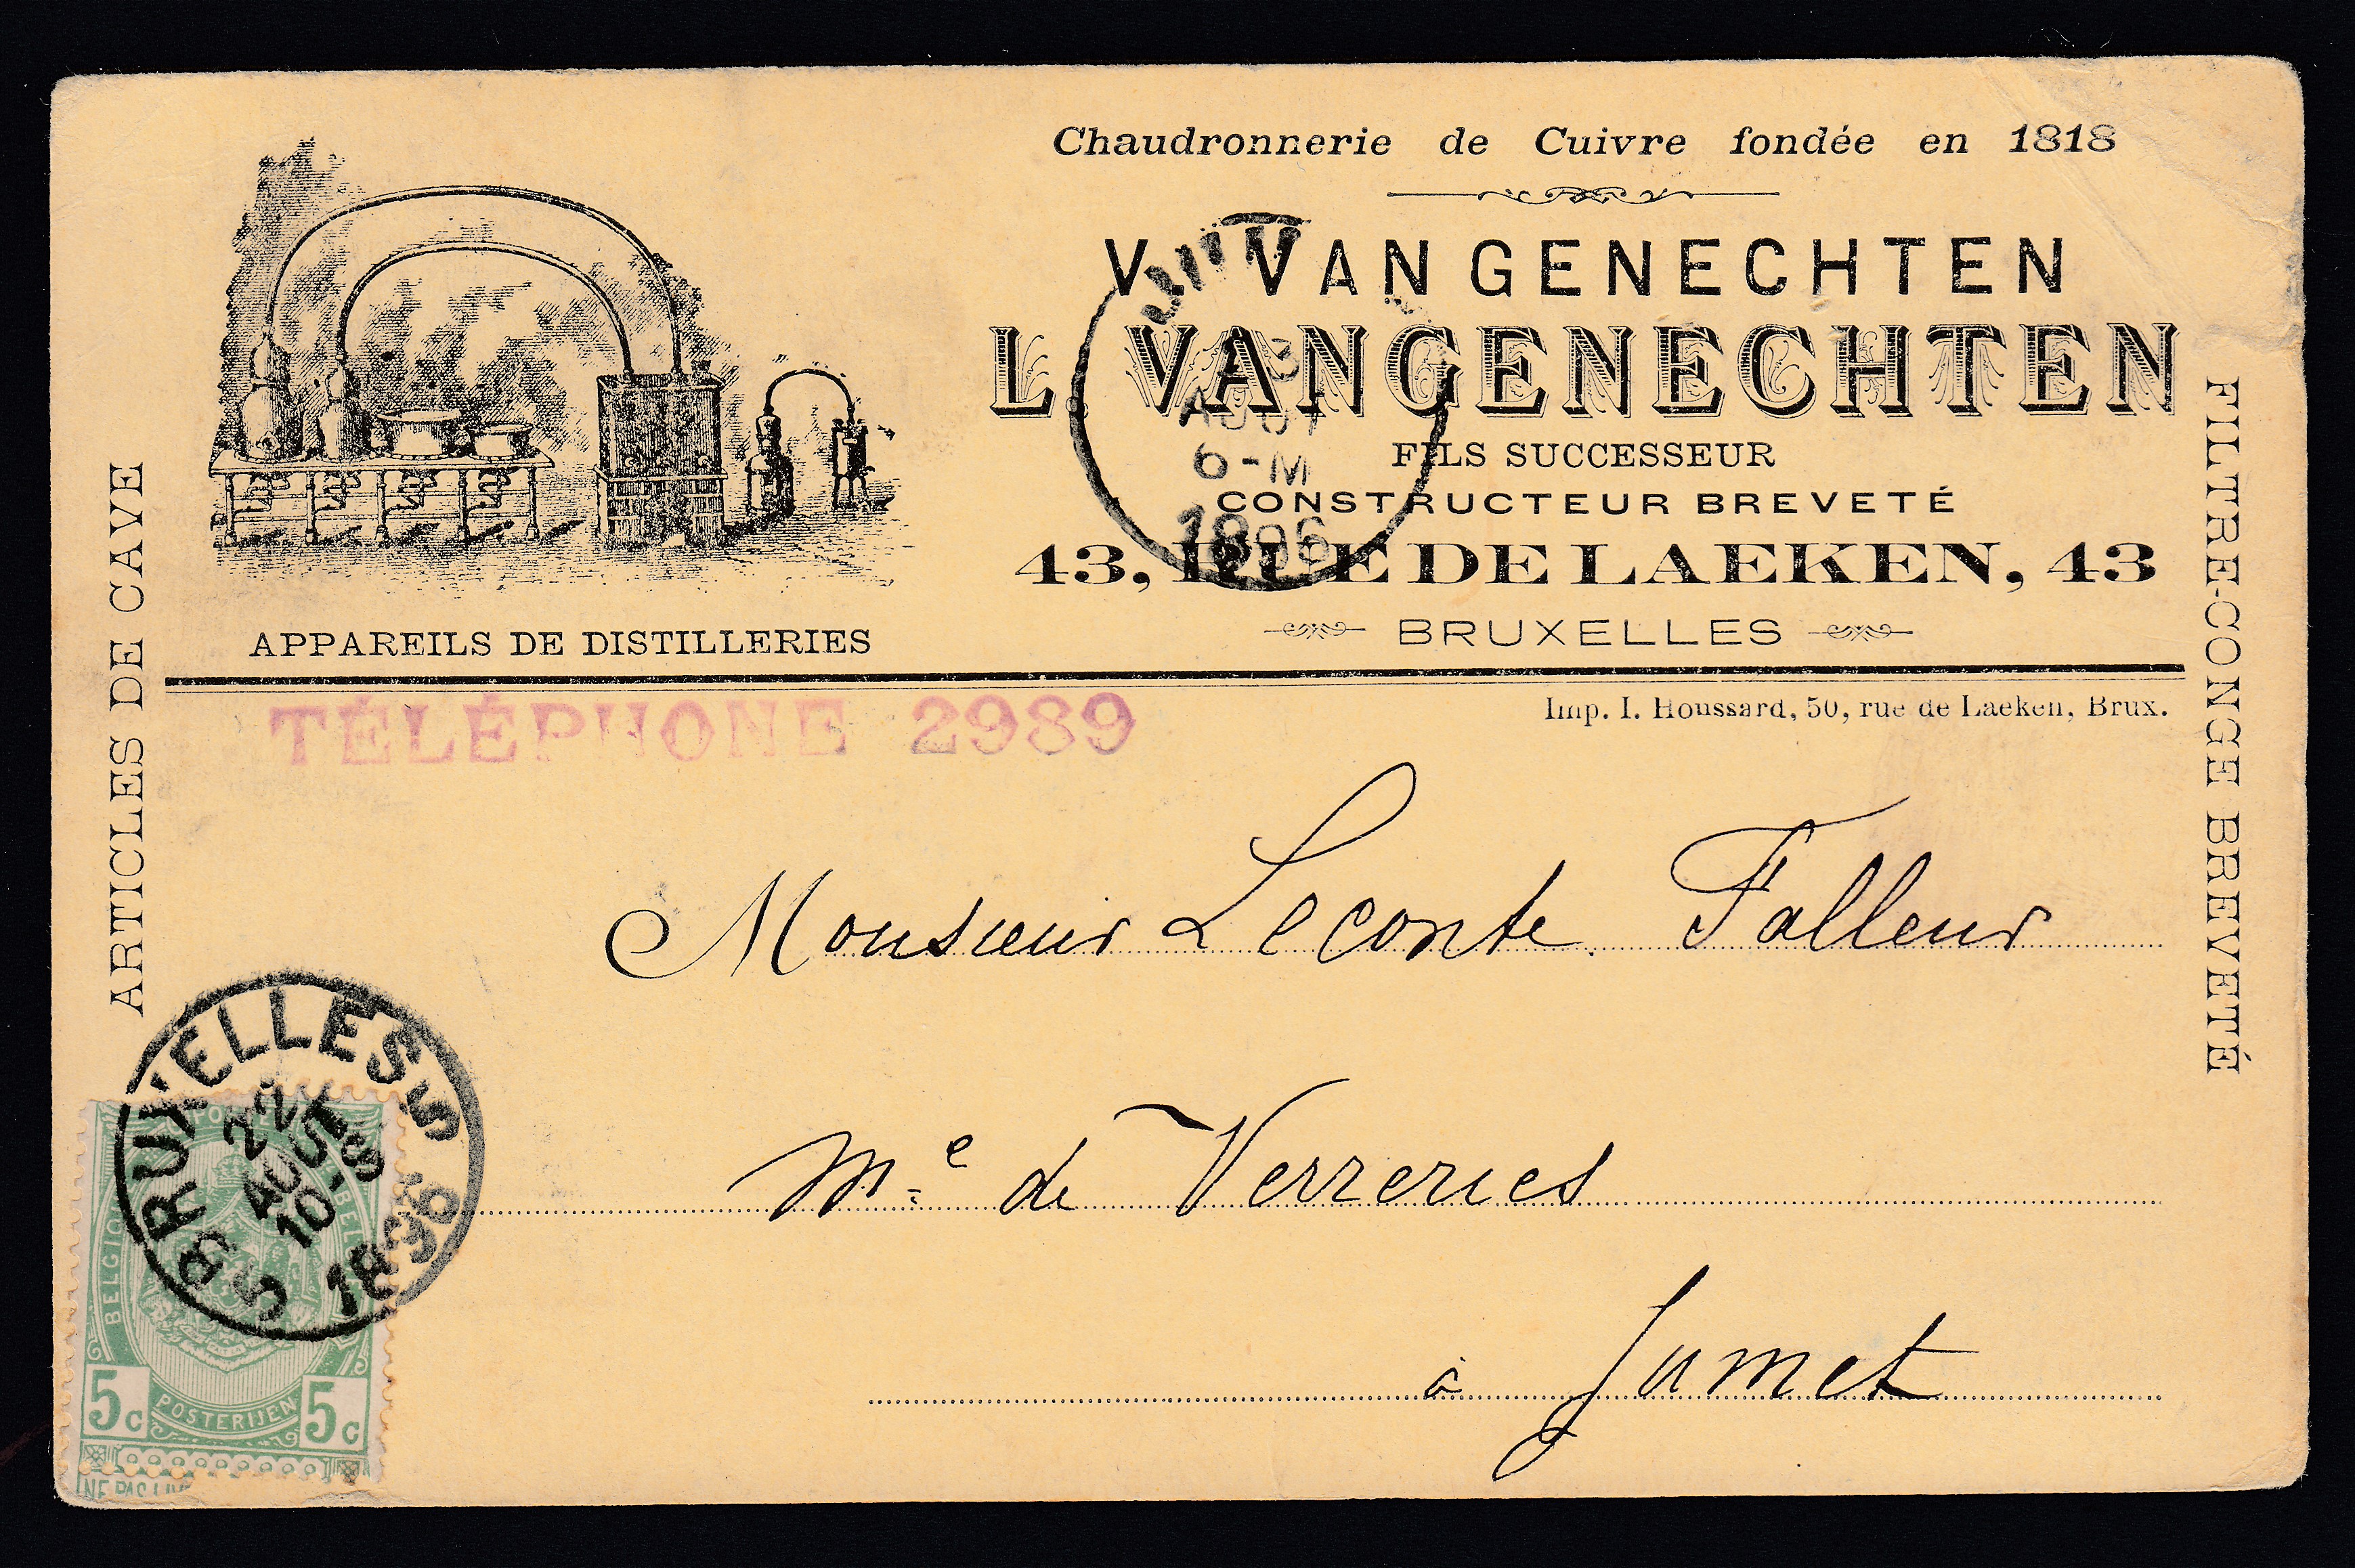 Chaudronnerie de Cuivre fondée en 1818
V. VANGENECHTEN
L. VANGENECHTEN
FILS SUCCESSEUR
CONSTRUCTEUR BREVETÉ
43, RUE DE LAEKEN, 43
BRUXELLES
APPAREILS DE DISTILLERIES
ARTICLES DE CAVE
FILTRE-CONGE BREVETÉ
Imp. I. Houssard, 50, rue de Laeken, Brux.
TÉLÉPHONE 2989
AOUT
6-M
1896
Monsieur Leconte Falleur
Me de Verreries
à Jumet
BRUXELLES 5
22
AOUT
10-S
5 1896
BELGIQUE
POSTERIJEN
5c 5c
NE PAS LIV